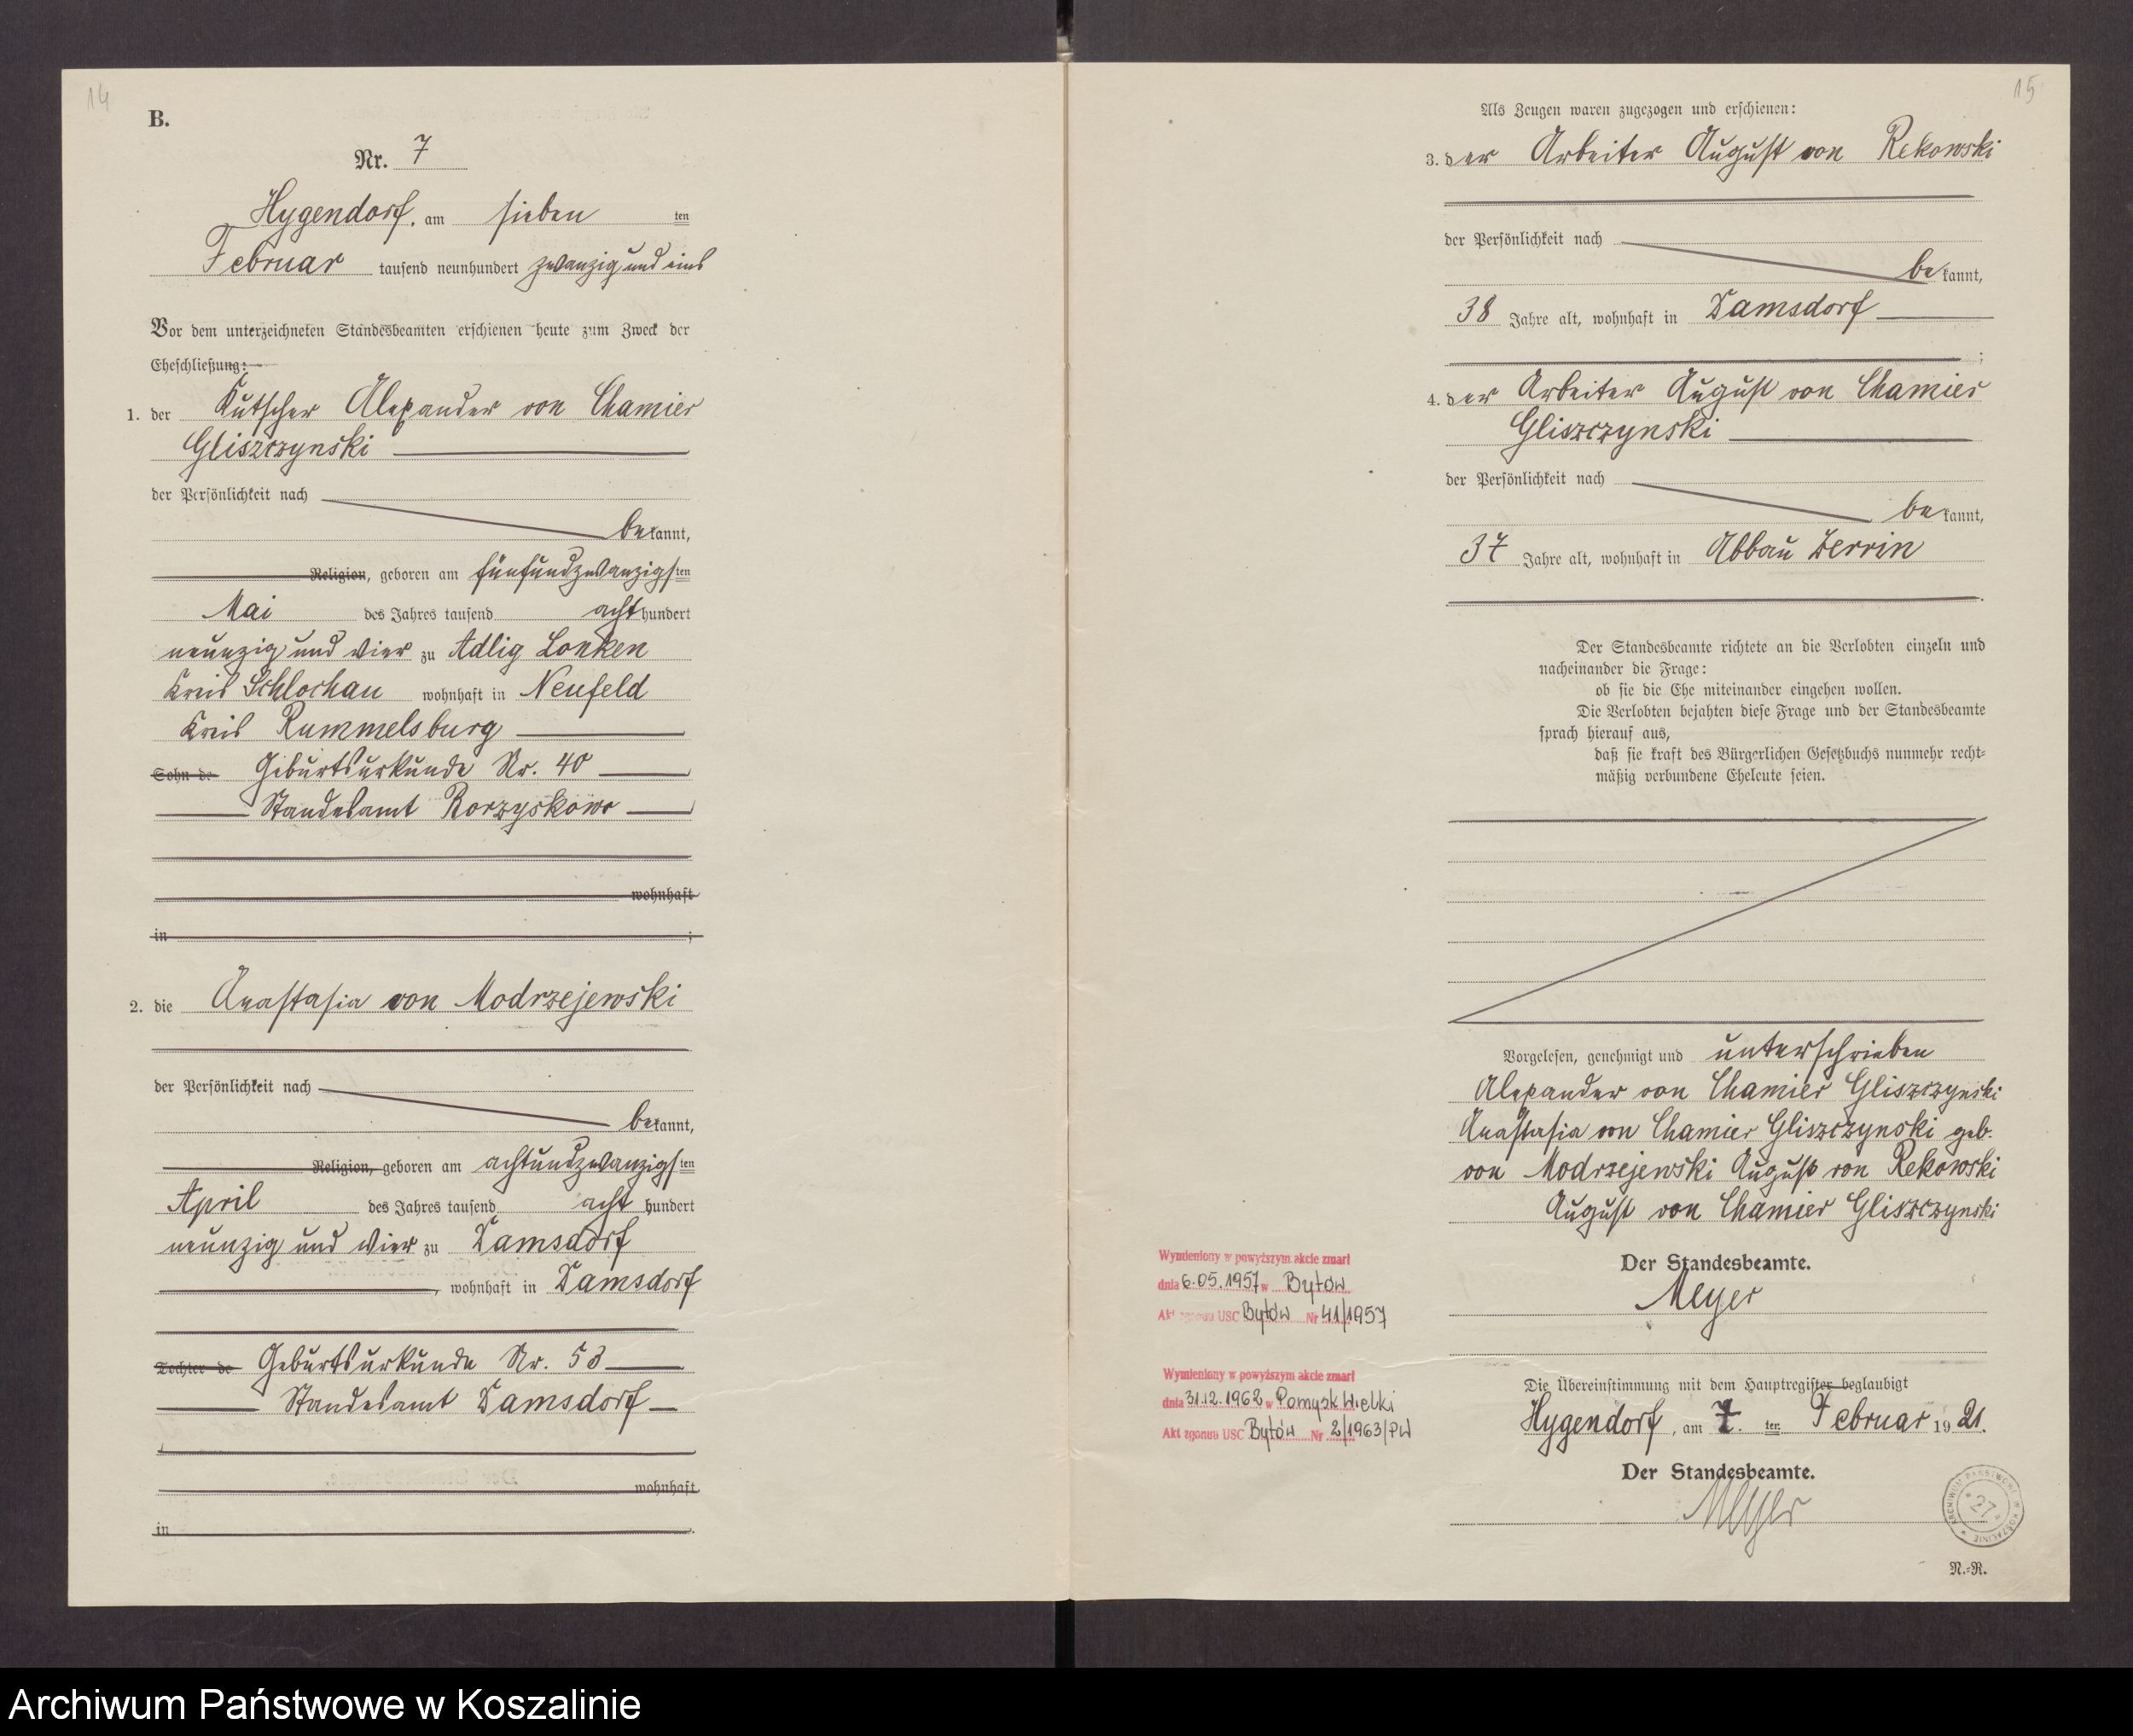 14
B.
Nr. 7
Hygendorf, am sieben ten
Februar tausend neunhundert zwanzig und eins
Vor dem unterzeichneten Standesbeamten erschienen heute zum Zweck der
Eheschließung:
1. der Kutscher Alexander von Chamier
Gliszczynski
der Persönlichkeit nach
bekannt,
Religion, geboren am fünfundzwanzigsten
Mai des Jahres tausend achthundert
neunzig und vier zu Adlig Lonken
Kreis Schlochau wohnhaft in Neufeld
Kreis Rummelsburg
Sohn de Geburtsurkunde Nr. 40
Standesamt Borzyskowo
wohnhaft
in ;
2. die Anastasia von Modrzejewski
der Persönlichkeit nach
bekannt,
Religion, geboren am achtundzwanzigsten
April des Jahres tausend acht hundert
neunzig und vier zu Damsdorf
, wohnhaft in Damsdorf
Tochter de Geburtsurkunde Nr. 53
Standesamt Damsdorf
wohnhaft
in .
15
Als Zeugen waren zugezogen und erschienen:
3. der Arbeiter August von Rekowski
der Persönlichkeit nach
bekannt,
38 Jahre alt, wohnhaft in Damsdorf
;
4. der Arbeiter August von Chamier
Gliszczynski
der Persönlichkeit nach
bekannt,
37 Jahre alt, wohnhaft in Abbau Zerrin
.
Der Standesbeamte richtete an die Verlobten einzeln und
nacheinander die Frage:
ob sie die Ehe miteinander eingehen wollen.
Die Verlobten bejahten diese Frage und der Standesbeamte
sprach hierauf aus,
daß sie kraft des Bürgerlichen Gesetzbuchs nunmehr recht-
mäßig verbundene Eheleute seien.
Vorgelesen, genehmigt und unterschrieben
Alexander von Chamier Gliszczynski
Anastasia von Chamier Gliszczynski geb.
von Modrzejewski August von Rekowski
August von Chamier Gliszczynski
Der Standesbeamte.
Meyer
Die Übereinstimmung mit dem Hauptregister beglaubigt
Hygendorf, am 7. ten Februar 1921.
Der Standesbeamte.
Meyer
N.-R.
Wymieniony w powyższym akcie zmarł
dnia 6.05.1957 w Bytów
Akt zgonu USC Bytów Nr 41/1957
Wymieniony w powyższym akcie zmarł
dnia 31.12.1962 w Pomysk Wielki
Akt zgonu USC Bytów Nr 2/1963/PW
ARCHIWUM PAŃSTWOWE W KOSZALINIE
27
Archiwum Państwowe w Koszalinie